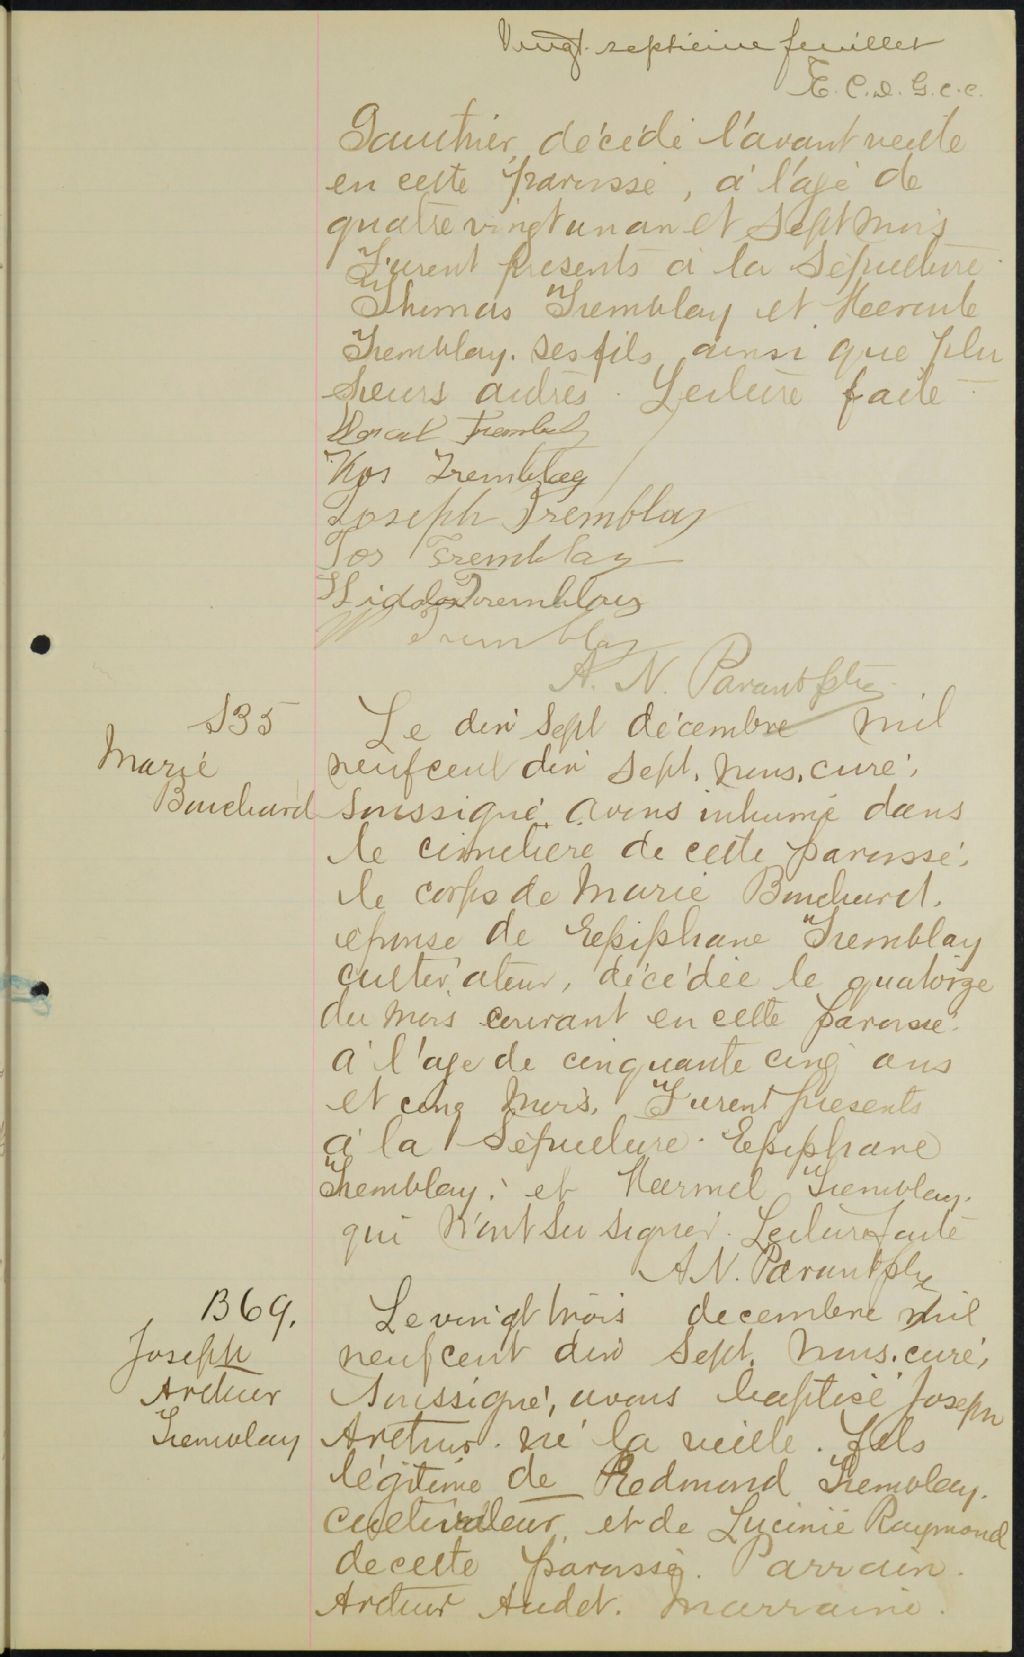 Vingt-septième feuillet
E. C. D. G. C. C.
Gauthier, décédé l'avant veille
en cette paroisse, à l'age de
quatre vingt un an et sept mois
Furent présents à la sépulture
Thomas Tremblay et Hercule
Tremblay. ses fils ainsi que plu
sieurs autres. Lecture faite
Tremblay
Tremblay
Joseph Tremblay
Jos Tremblay
Tremblay
Tremblay
A. N. Parant ptre
S35
Marie
Bouchard
Le dix sept décembre mil
neuf cent dix sept, nous, curé,
soussigné, avons inhumé dans
le cimetière de cette paroisse,
le corps de Marie Bouchard,
épouse de Epiphane Tremblay
cultivateur, décédée le quatorze
du mois courant en cette paroisse
à l'age de cinquante cinq ans
et cinq mois. Furent présents
à la sépulture. Epiphane
Tremblay, et Tremblay.
qui n'ont su signer. Lecture faite
A. N. Parant ptre
B69.
Joseph
Arthur
Tremblay
Le vingt trois decembre mil
neuf cent dix sept. nous, curé,
soussigné, avons baptisé Joseph
Arthur. né la veille. fils
légitime de Redmond Tremblay.
cultivateur, et de Lucinie Raymond
de cette paroisse. Parrain.
Arthur Audet. Marraine.